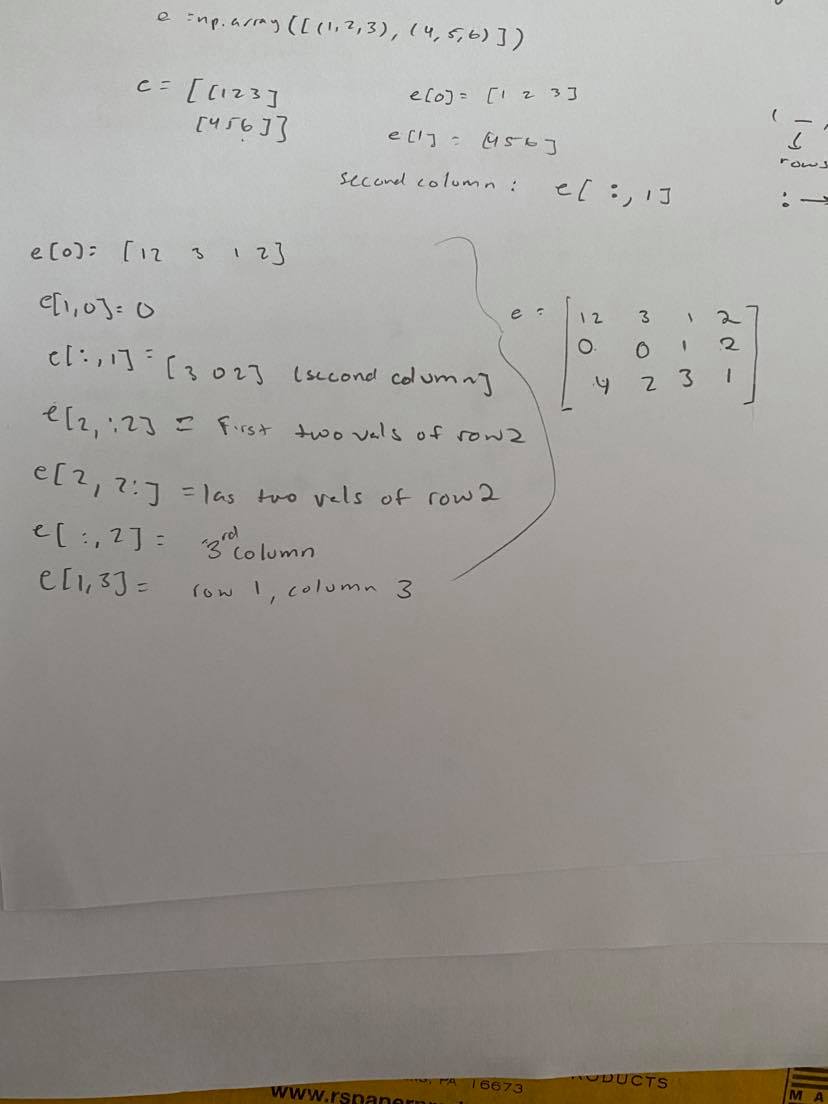 e =np.array([(1,2,3), (4,5,6)])
c = [[123]
[456]]
e[0]= [1 2 3]
e[1] = [456]
second column : e[ :, 1]
rows
: →
e[0]= [12 3 1 2]
e[1,0]= 0
e[:,1] = [3 0 2] (second column]
e[2,:2] = first two vals of row 2
e[2, 2:] = las two vals of row 2
e[:,2] = 3rd column
e[1,3] = row 1, column 3
e = [12 3 1 2
0. 0 1 2
4 2 3 1]
PA 16673
PRODUCTS
MA